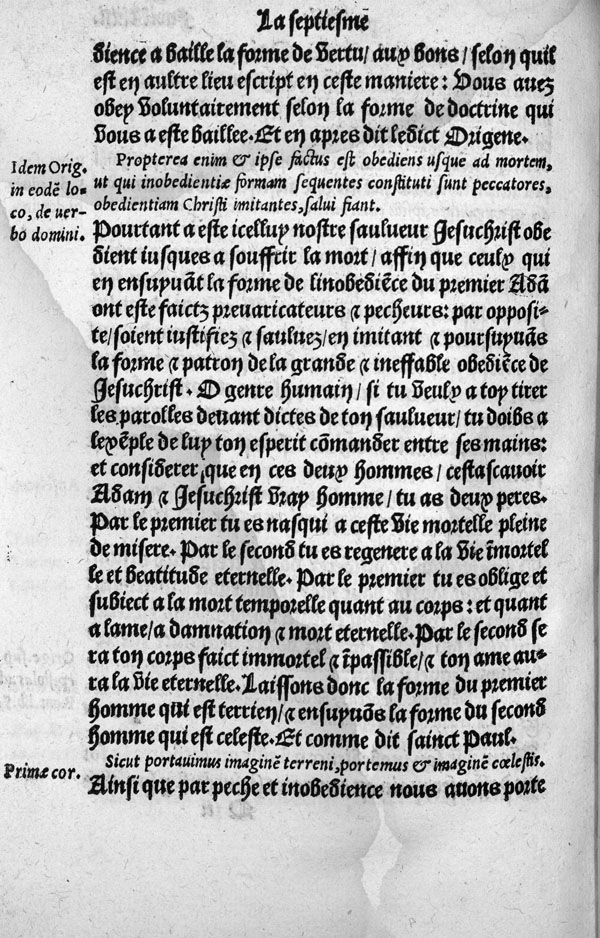 La septiesme
dience a baille la forme de vertu/ aux bons/ selon quil
est en aultre lieu escript en ceste maniere: Vous auez
obey voluntairement selon la forme de doctrine qui
vous a este baillee. Et en apres dit ledict Origene.
Propterea enim & ipse factus est obediens usque ad mortem,
ut qui inobedientiæ formam sequentes constituti sunt peccatores,
obedientiam Christi imitantes, salui fiant.
Idem Orig.
in eodē lo-
co, de uer-
bo domini.
Pourtant a este icelluy nostre saulueur Jesuchrist obe
dient iusques a souffrir la mort/ affin que ceulx qui
en ensuyuāt la forme de linobediēce du premier Adā
ont este faictz preuaricateurs ⁊ pecheurs: par opposi-
te/ soient iustifiez ⁊ sauluez/ en imitant ⁊ poursuyuās
la forme ⁊ patron de la grande ⁊ ineffable obediēce de
Jesuchrist. O genre humain/ si tu veulx a toy tirer
les parolles deuant dictes de ton saulueur/ tu doibs a
lexēple de luy ton esperit cōmander entre ses mains:
et considerer que en ces deux hommes/ cestascauoir
Adam ⁊ Jesuchrist vray homme/ tu as deux peres.
Par le premier tu es nasqui a ceste vie mortelle pleine
de misere. Par le second tu es regenere a la vie īmortel
le et beatitude eternelle. Par le premier tu es oblige et
subiect a la mort temporelle quant au corps: et quant
a lame/ a damnation ⁊ mort eternelle. Par le second se
ra ton corps faict immortel ⁊ īpassible/ ⁊ ton ame au-
ra la vie eternelle. Laissons donc la forme du premier
homme qui est terrien/ ⁊ ensuyuōs la forme du second
homme qui est celeste. Et comme dit sainct Paul.
Sicut portauimus imaginē terreni, portemus & imaginē cœlestis.
Primæ cor.
Ainsi que par peche et inobedience nous auons porte